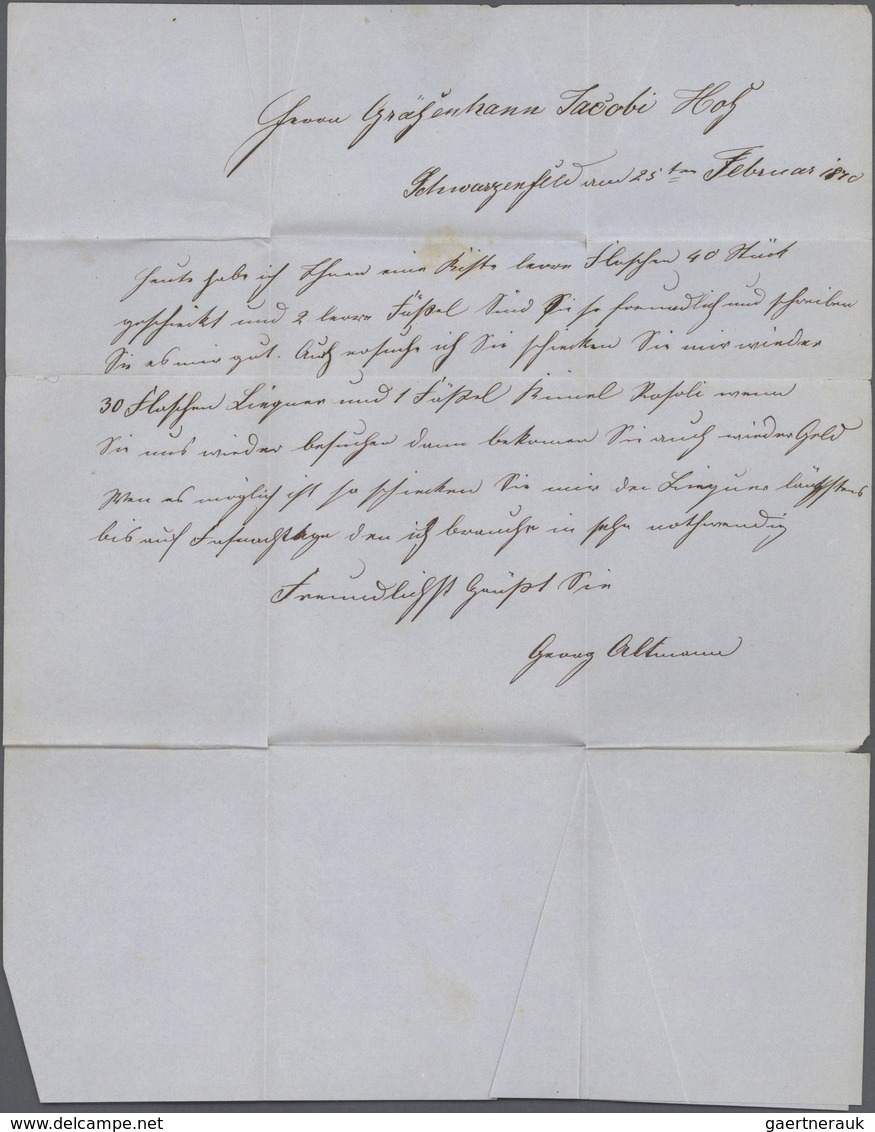 Herrn Gräfenhann Jacobi Hof
Schwarzenfeld am 25ten Februar 1870
Heute habe ich Ihnen eine Kiste leere Flaschen 40 Stück
geschickt und 2 leere Fäßel Sind Sie so freundlich und schreiben
Sie es mir gut. Auch ersuche ich Sie schicken Sie mir wieder
30 Flaschen Liquer und 1 Fäßel Kümel Rosoli wenn
Sie uns wieder besuchen dann bekomen Sie auch wieder Geld
Wen es möglich ist so schicken Sie mir den Liquer längstens
bis auf den ich brauche in sehr nothwendig
Freundlichst Grüßt Sie
Georg Altmann
www.delcampe.net
gaertnerauk